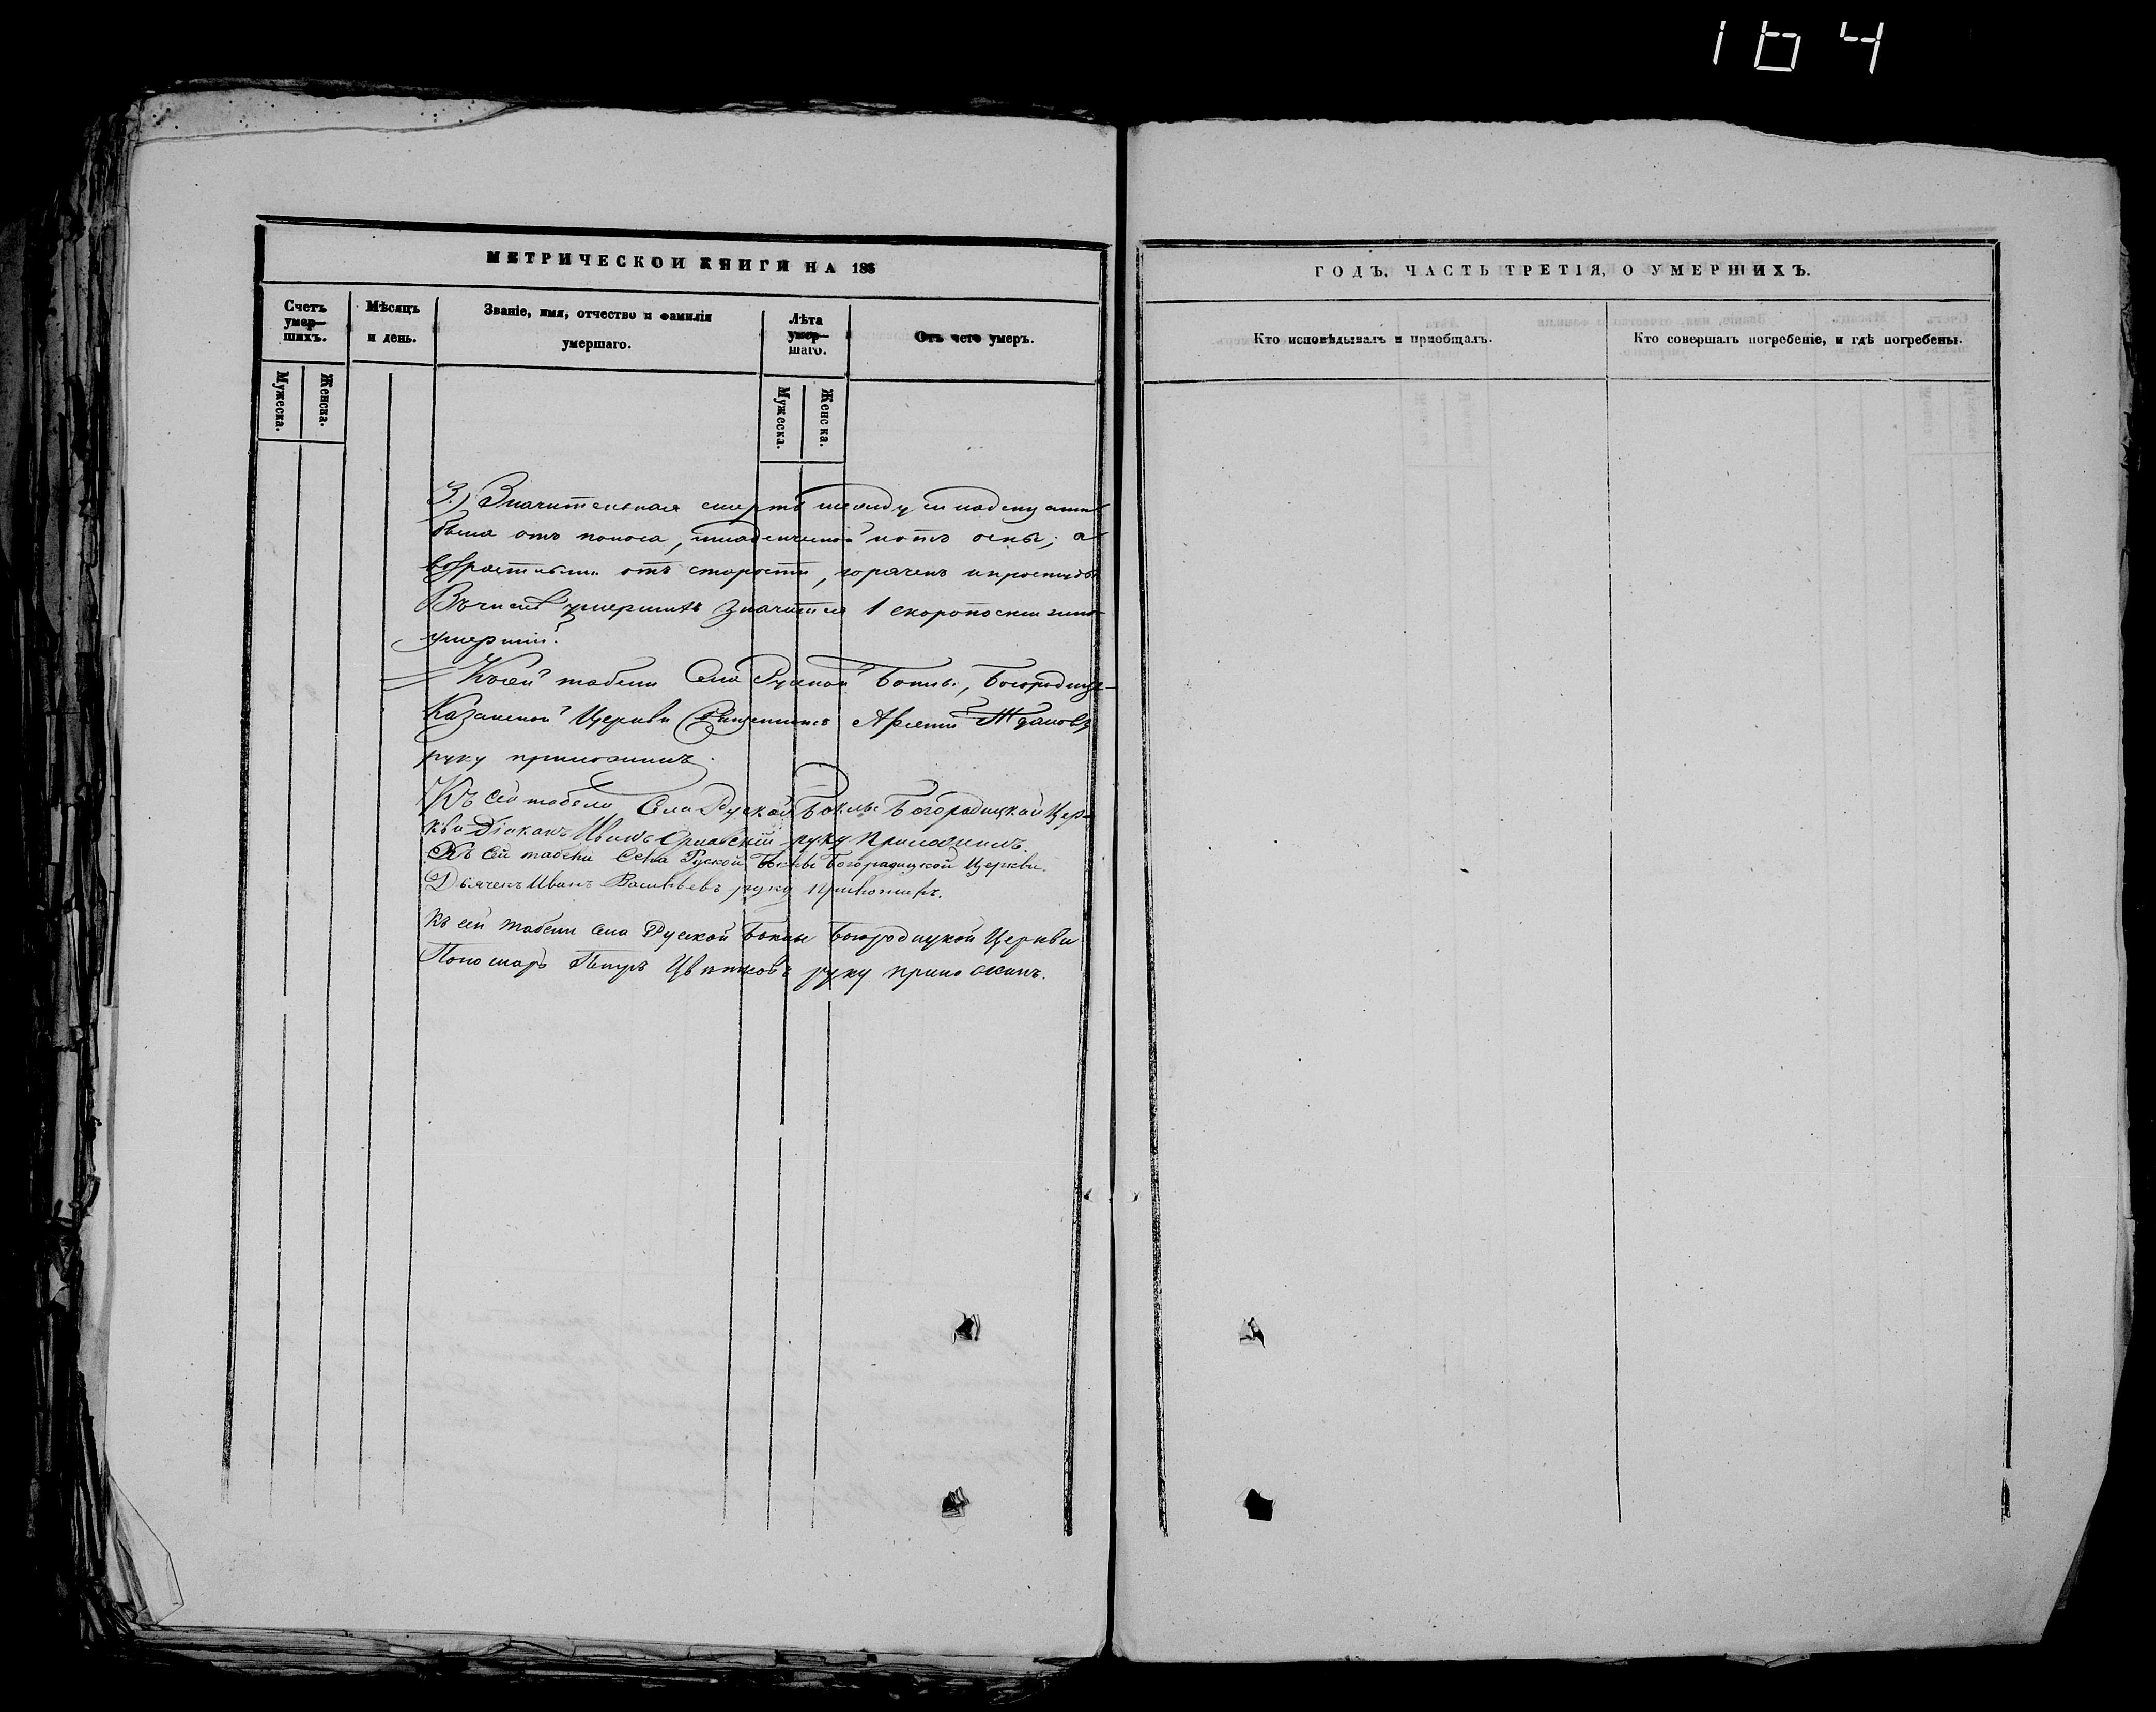 164
МЕТРИЧЕСКОЙ КНИГИ НА 186
Счетъ умер-шихъ.
Мужеска.
Женска.
Мѣсяцъ и день.
Званіе, имя, отчество и фамилія умершаго.
Лѣта умер-шаго.
Мужеска.
Женска.
Отъ чего умеръ.
3.) Значительная смерть между младенцами
была отъ поноса, младенческой и отъ оспы; а
возрастными отъ старости, горячекъ и простуды
Въ числѣ умершихъ значится 1 скоропостижно
умершій.
Къ сей табели Села Руской Боклы, Богородице-
Казанской Церкви Священникъ Арсеній Ждановъ
руку приложилъ.
Къ сей табели Села Руской Боклы Богородицкой Цер-
кви Діаконъ Иванъ Орловскій руку приложилъ.
Къ сей табели Села Руской Боклы Богородицкой Церкви
Дьячекъ Иванъ Васильевъ руку приложилъ.
Къ сей табели Села Руской Боклы Богородицкой Церкви
Пономарь Петръ Цвѣтковъ руку приложилъ.
ГОДЪ, ЧАСТЬ ТРЕТІЯ, О УМЕРШИХЪ.
Кто исповѣдывалъ и пріобщалъ.
Кто совершалъ погребеніе, и гдѣ погребены.